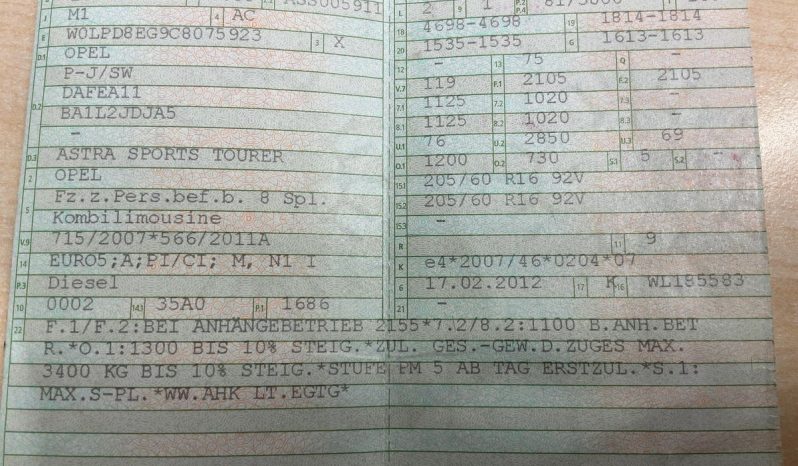 J M1 4 AC
E W0LPD8EG9C8075923 3 X
D.1 OPEL
P-J/SW
DAFEA11
D.2 BA1L2JDJA5
-
D.3 ASTRA SPORTS TOURER
2 OPEL
5 Fz.z.Pers.bef.b. 8 Spl.
Kombilimousine
V.9 715/2007*566/2011A
14 EURO5;A;PI/CI; M, N1 I
P.3 Diesel
10 0002 14.1 35A0 P.1 1686
L 2 9 1 P.2 P.4
18 4698-4698 19 1814-1814
20 1535-1535 G 1613-1613
12 - 13 75 Q -
V.7 119 F.1 2105 F.2 2105
7.1 1125 7.2 1020 7.3 -
8.1 1125 8.2 1020 8.3 -
U.1 76 U.2 2850 U.3 69
O.1 1200 O.2 730 S.1 5 S.2 -
15.1 205/60 R16 92V
15.2 205/60 R16 92V
15.3 -
R 11 9
K e4*2007/46*0204*07
6 17.02.2012 17 K 16 WL155583
21 -
22 F.1/F.2:BEI ANHÄNGEBETRIEB 2155*7.2/8.2:1100 B.ANH.BET
R.*O.1:1300 BIS 10% STEIG.*ZUL. GES.-GEW.D.ZUGES MAX.
3400 KG BIS 10% STEIG.*STUFE PM 5 AB TAG ERSTZUL.*S.1:
MAX.S-PL.*WW.AHK LT.EGTG*